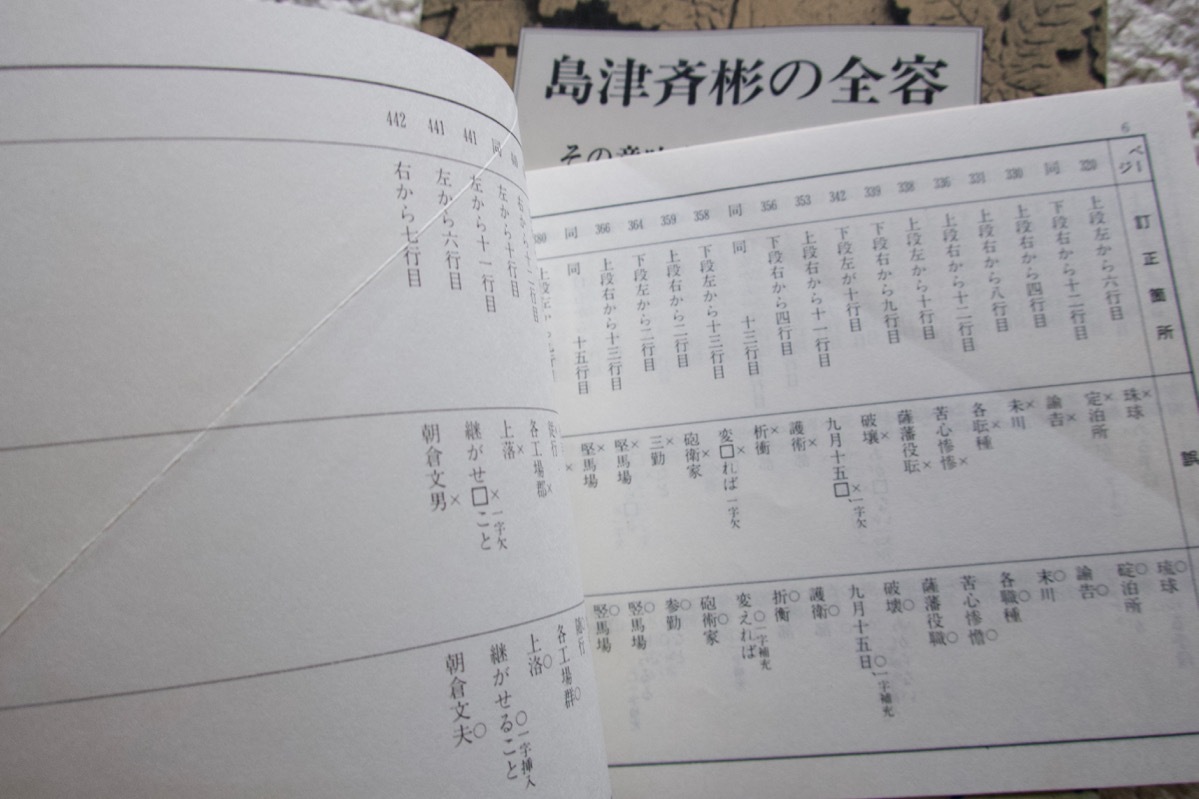 島津斉彬の全容
6
ページ 訂正箇所 誤
320 上段左から六行目 珠球 琉球
同 下段右から十二行目 定泊所 碇泊所
330 上段右から四行目 諭吿 諭告
331 上段右から八行目 未川 末川
336 上段右から十二行目 各耺種 各職種
338 上段左から十行目 苦心惨惨 苦心惨憺
339 下段右から九行目 薩藩役耺 薩藩役職
342 下段左が十行目 破壌 破壊
353 上段右から十一行目 九月十五□、一字欠 九月十五日、一字補充
356 下段右から四行目 護術 護衛
同 同 十三行目 析衝 折衝
358 下段左から十三行目 変□れば 一字欠 変えれば 一字補充
359 上段右から二行目 砲衛家 砲術家
364 下段左から二行目 三勤 参勤
366 上段右から十三行目 堅馬場 竪馬場
同 同 十五行目 堅馬場 竪馬場
380
同 左から十行目 各工場郡 各工場群
441 左から十一行目 上落 上洛
441 左から六行目 継がせ□こと 一字欠 継がせること 一字挿入
442 右から七行目 朝倉文男 朝倉文夫